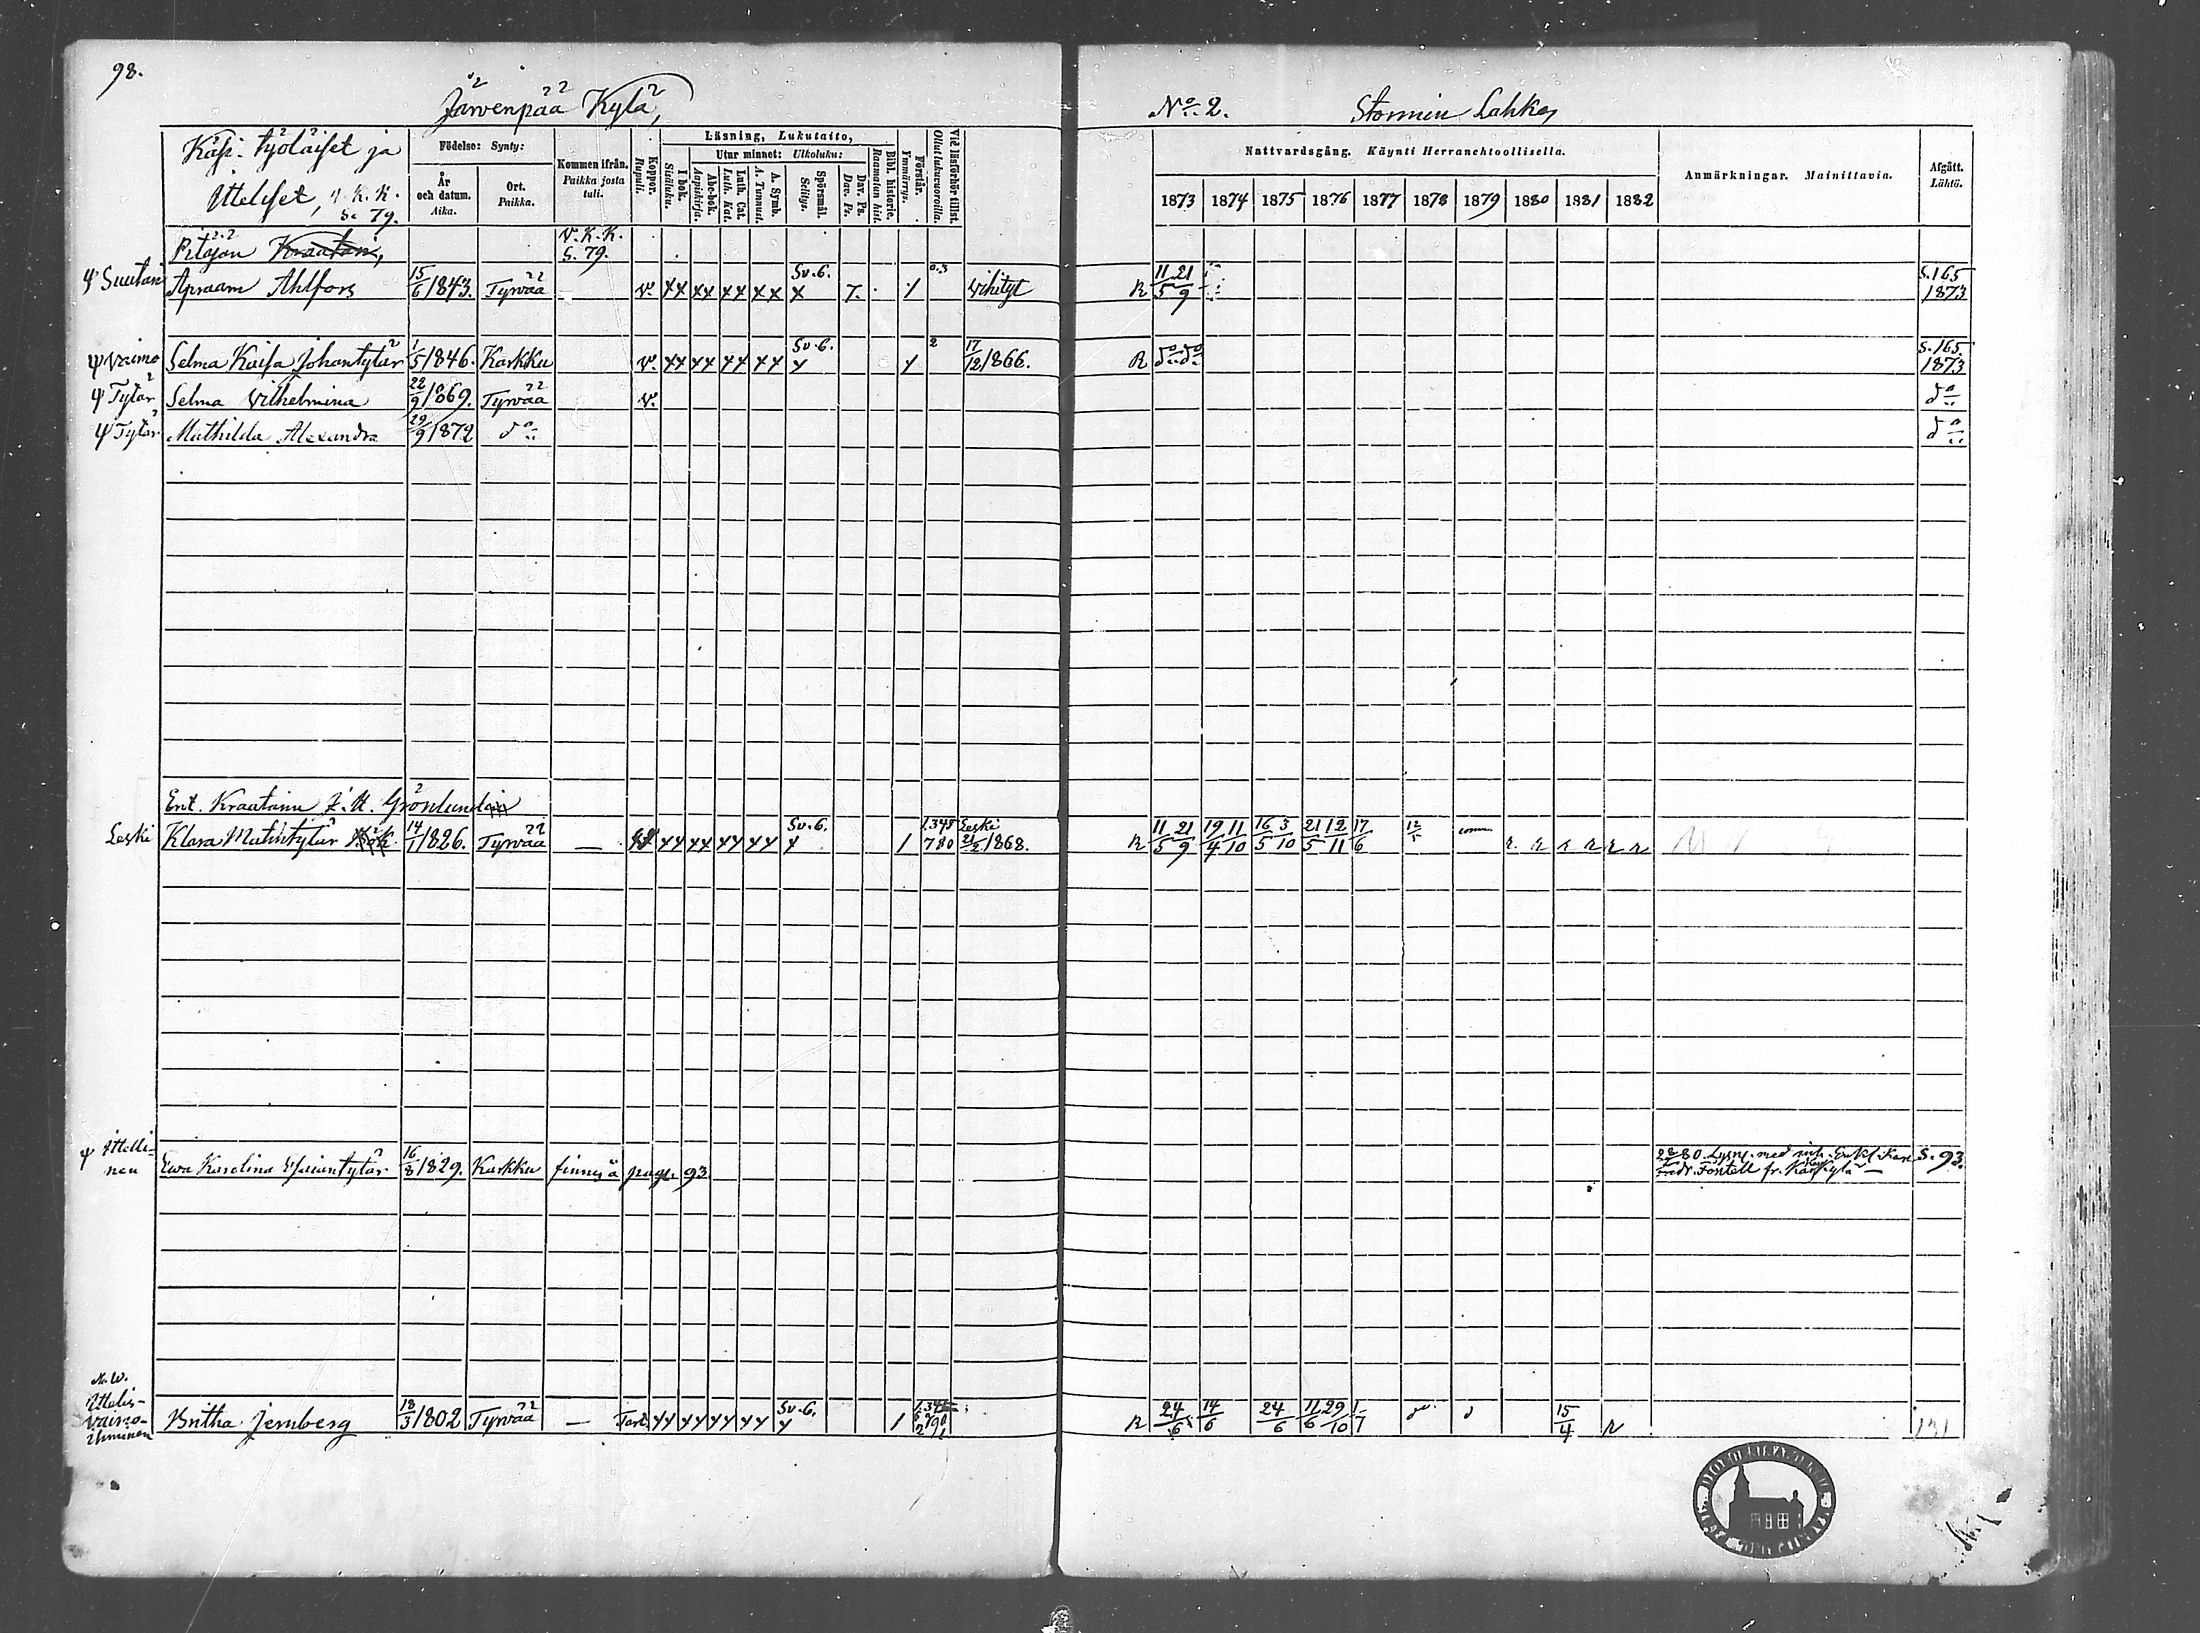 98.
Järvenpää Kylä,
No 2.
Stormin Lahko,
Käsi-työläiset ja
Itteliset, v. k. k.
S. 79.
Födelse: Synty:
År och datum. Aika.
Ort. Paikka.
Kommen ifrån. Paikka josta tuli.
Koppor. Rupuli.
Läsning, Lukutaito,
I bok. Sisäluku.
Utur minnet: Ulkoluku:
Abc-bok. Aapiskirja.
Luth. Cat. Luth. Kat.
A. Symb. A. Tunnust.
Spörsmål. Selitys.
Dav. Ps. Dav. Ps.
Bibl. historie. Raamatun hist.
Förstår. Ymmärrys.
Vid läsförhör tillst. Ollut lukuvuoroilla.
Nattvardsgång. Käynti Herranehtoollisella.
1873 1874 1875 1876 1877 1878 1879 1880 1881 1882
Anmärkningar. Mainittavia.
Afgått. Lähtö.
Pitäjän Kraatari, V. K. K. S. 79.
Suutari Apraam Ahlfors 15/6 1843. Tyrvää — v. Sv. 6. 7. 1 Vihityt R 11/5 21/9 S. 165 1873
Vaimo Selma Kaisa Johantytär 1/5 1846. Karkku v. Sv. 6. 2 17/12 1866. R do do S. 165. 1873
Tytär Selma Vilhelmina 22/9 1869. Tyrvää v. do
Tytär Mathilda Alexandra 29/9 1872 do do
Ent. Kraatarin Grönlundin
Leski Klara Matintytär 14/1 1826. Tyrvää — Sv. 6. 1 1.3.4.5 780 Leski 21/2 1868. R 11/5 21/9 19/4 11/10 16/5 3/10 21/5 12/11 17/6 r. r r r r r
Ittelli-
nen Ewa Karolina Esaiantytär 16/8 1829. Karkku finnes å pag. 93 80. Lysn. med Enkl. Fredr. Fontell fr. S. 93.
Ittelis-
vaimo-
ihminen Britha Jernberg 18/3 1802 Tyrvää — Sv. 6. 1 R 24/6 14/6 24/6 11/6 29/10 1/7 15/4 r 131